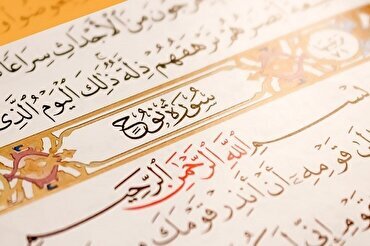 رَجُونَ مِنَ الْأَجْدَاثِ سِرَاعًا
تَرْهَقُهُمْ ذِلَّةٌ ذَٰلِكَ الْيَوْمُ الَّذِى
سُورَةُ نُوحٍ
بِسْمِ اللَّهِ الرَّحْمَٰنِ الرَّحِيمِ
قَوْمِهِ أَنْ أَنذِرْ قَوْمَكَ
قَوْمِ إِنِّى